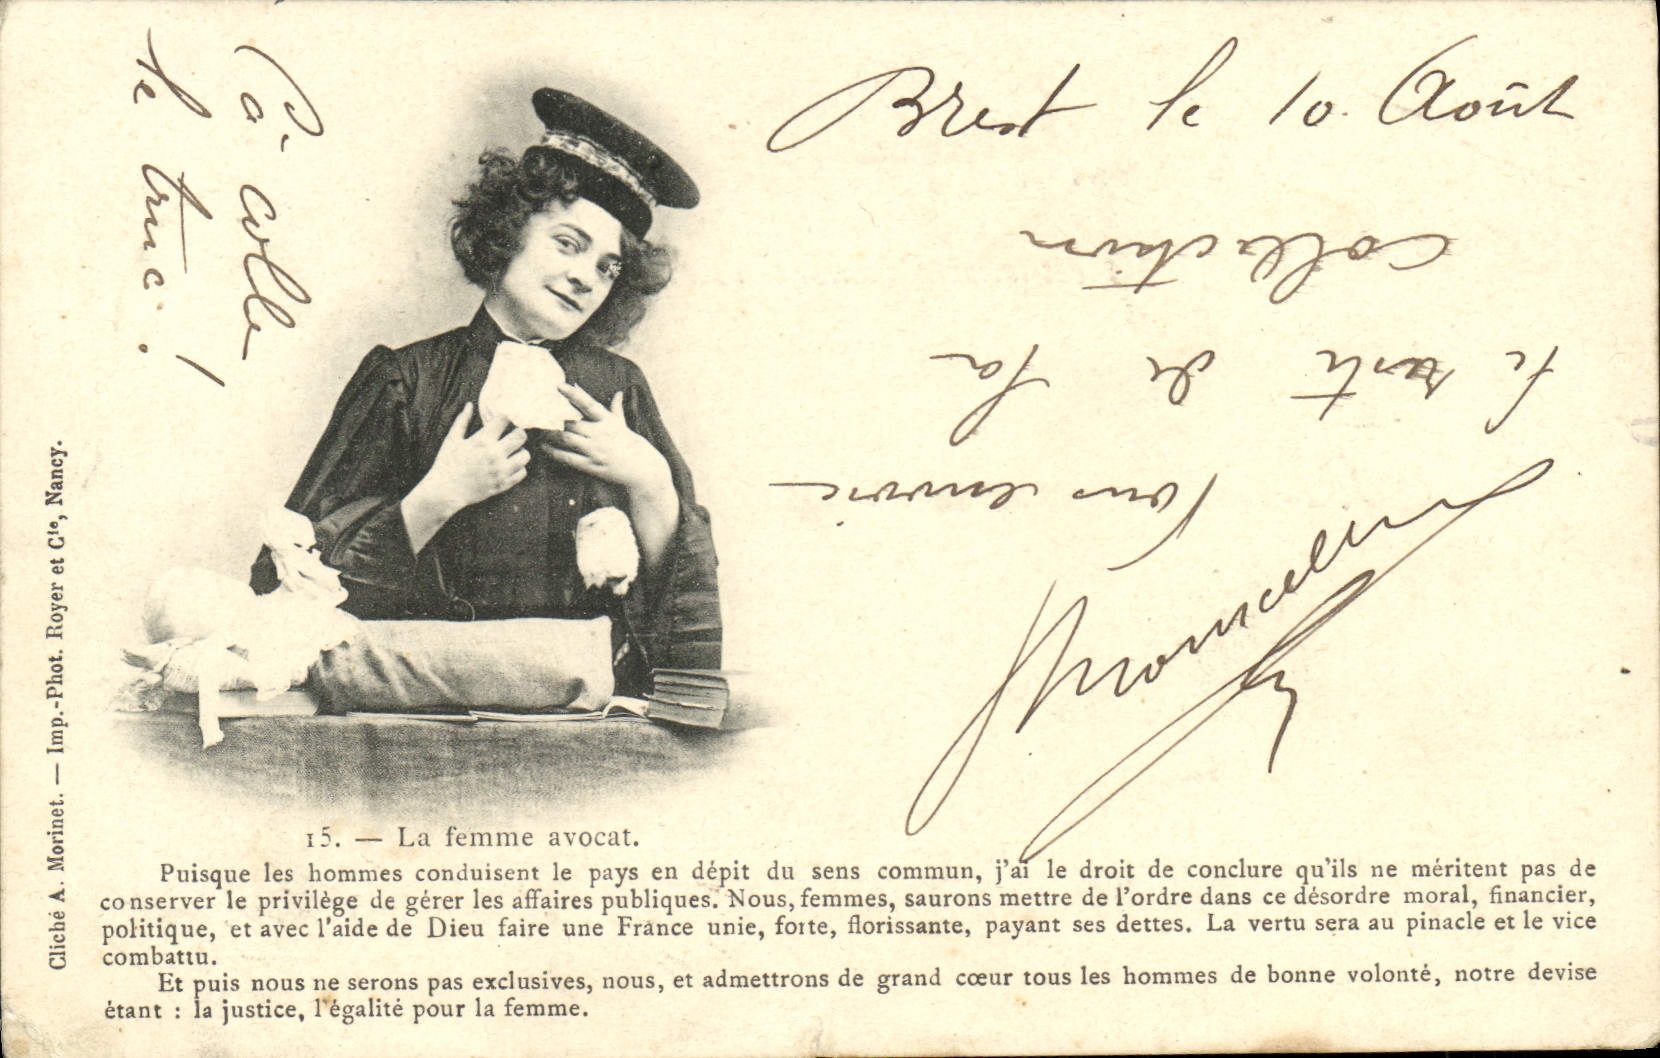 Brest le 10 Août
Vous envoie
le reste de la
collection
Ça colle
le truc !
15. — La femme avocat.
Puisque les hommes conduisent le pays en dépit du sens commun, j'ai le droit de conclure qu'ils ne méritent pas de
conserver le privilège de gérer les affaires publiques. Nous, femmes, saurons mettre de l'ordre dans ce désordre moral, financier,
politique, et avec l'aide de Dieu faire une France unie, forte, florissante, payant ses dettes. La vertu sera au pinacle et le vice
combattu.
Et puis nous ne serons pas exclusives, nous, et admettrons de grand cœur tous les hommes de bonne volonté, notre devise
étant : la justice, l'égalité pour la femme.
Cliché A. Morinet. — Imp.-Phot. Royer et Cie, Nancy.